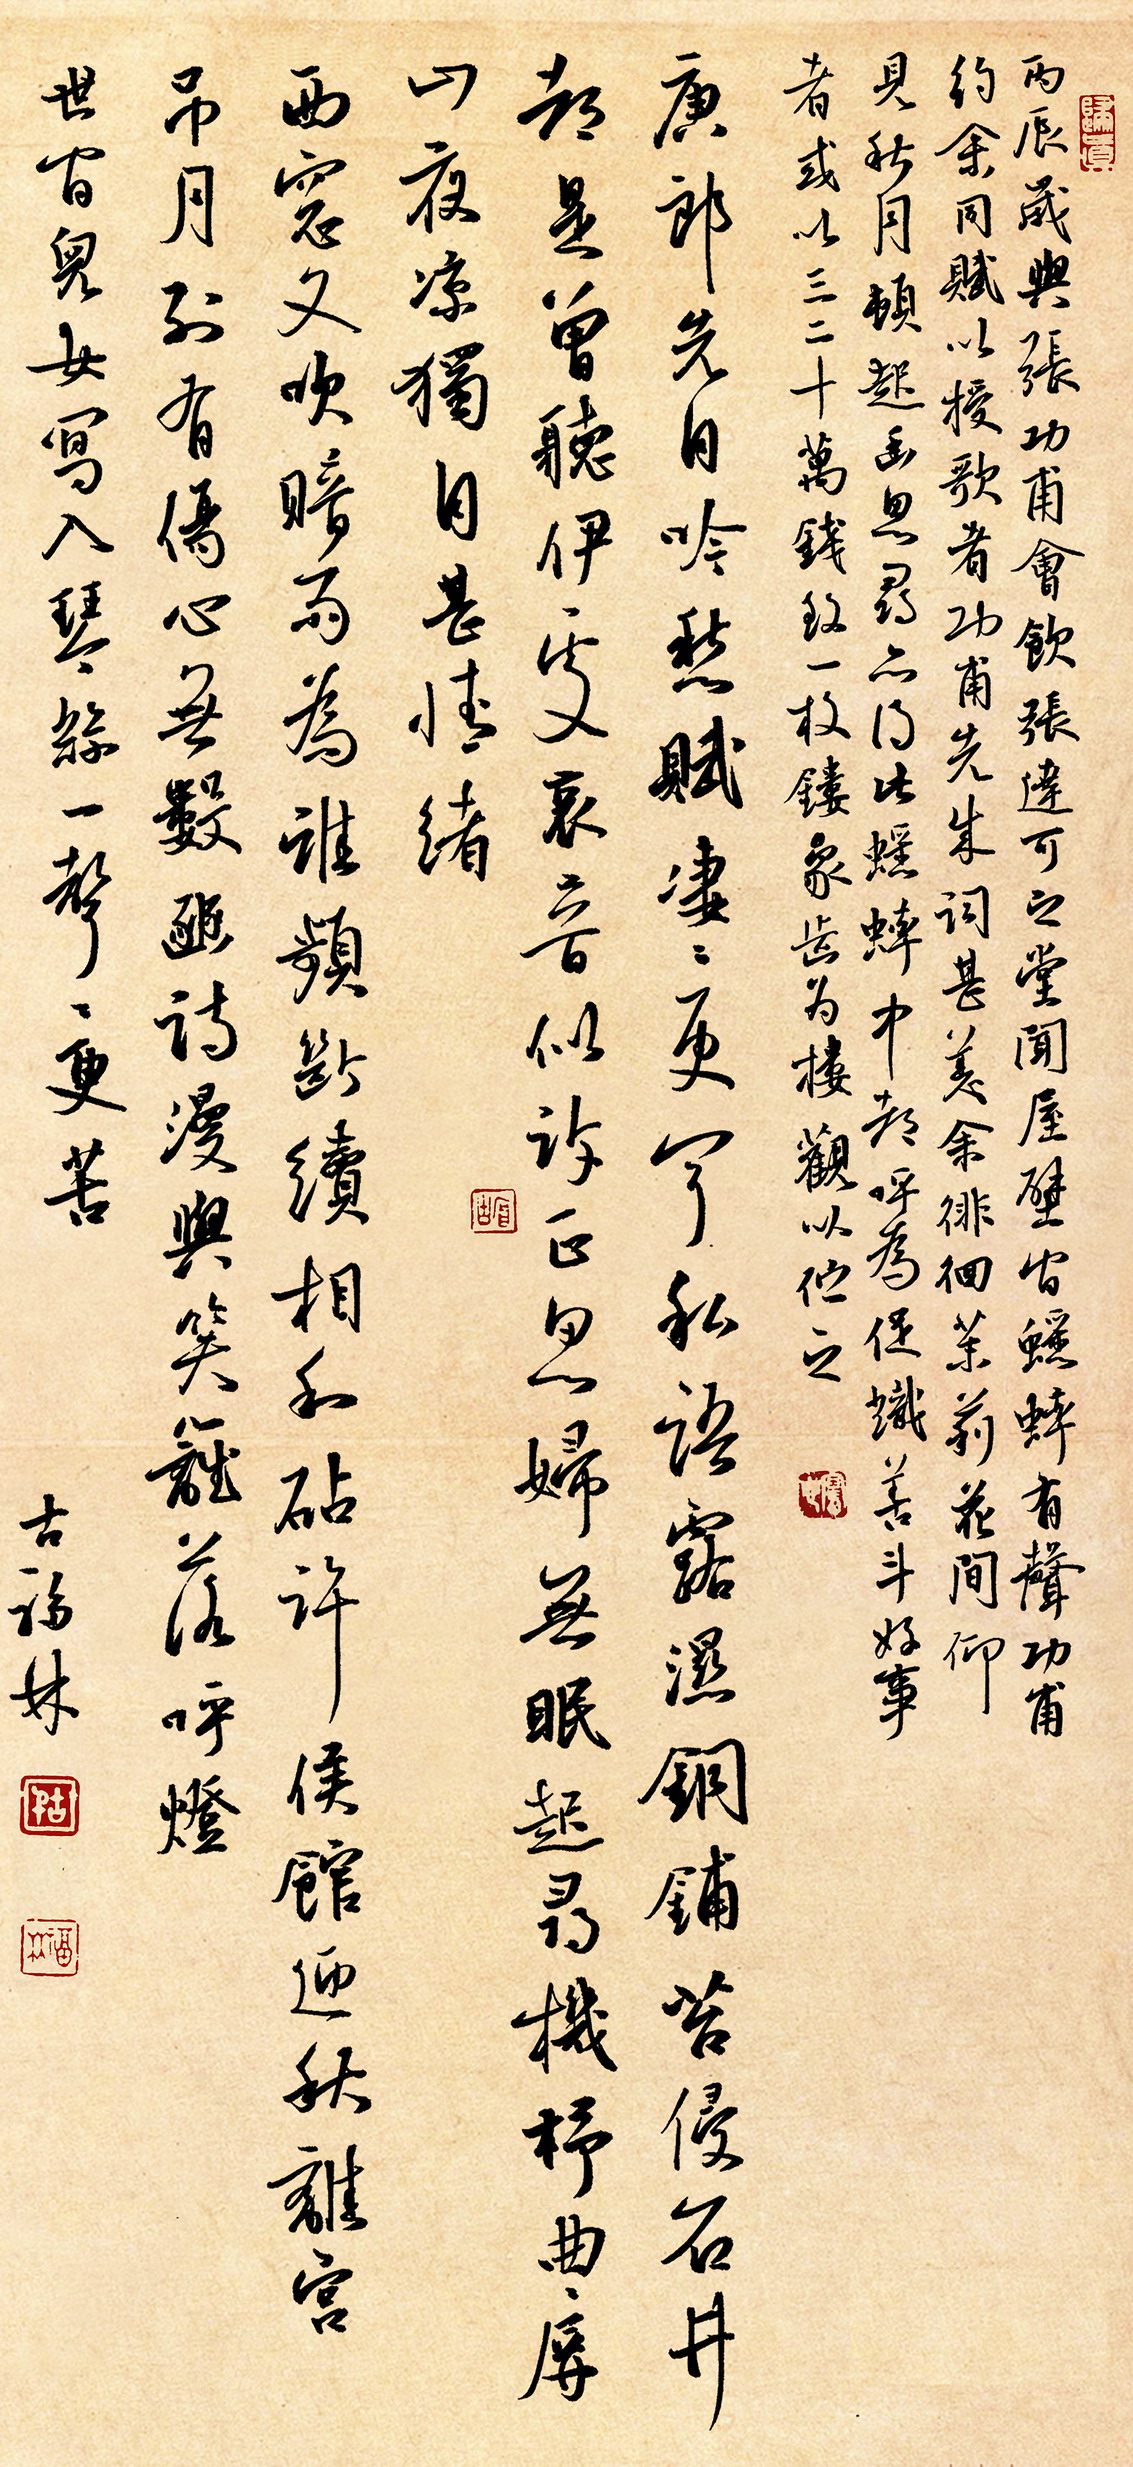 丙辰歲與張功甫會飲張達可之堂聞屋壁間蟋蟀有聲功甫
約余同賦以授歌者功甫先成詞甚美余徘徊茉莉花間仰
見秋月頓起幽思尋亦得此蟋蟀中都呼為促織善斗好事
者或以三二十萬錢致一枚鏤象齒为樓觀以貯之
庾郎先自吟愁賦凄〻更聞私語露濕銅鋪苔侵石井
都是曾聽伊處哀音似訴正思婦無眠起尋機杼曲〻屏
山夜涼獨自甚情緒
西窗又吹暗雨為誰頻斷續相和砧杵候館迎秋離宮
吊月別有傷心無數豳詩漫與笑籬落呼燈
世間兒女寫入琴絲一聲〻更苦
古福林